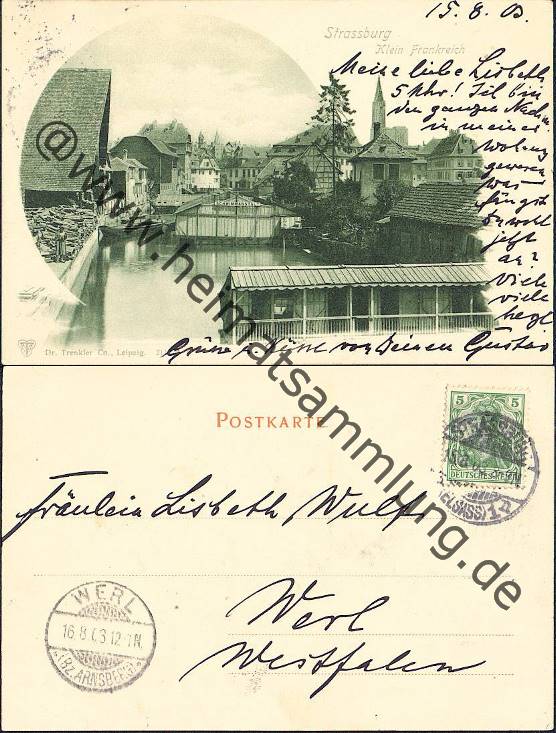 15. 8. 03.
Strassburg
Klein Frankreich
Meine liebe Lisbeth
5 Uhr! Ich bin
den ganzen Nachm
in meiner
gewesen
Was
fängst
Du wohl
jetzt
an?
Viele
viele
herzl
Grüsse u. Küsse von Deinem Gustav
Dr. Trenkler Co., Leipzig.
@www.heimatsammlung.de
POSTKARTE
5 5
DEUTSCHES REICH
STRASSBURG
(ELSASS)
Fräulein Lisbeth Wulff
Werl
Westfalen
WERL
16.8.03.12-1N.
(Bz. ARNSBERG)